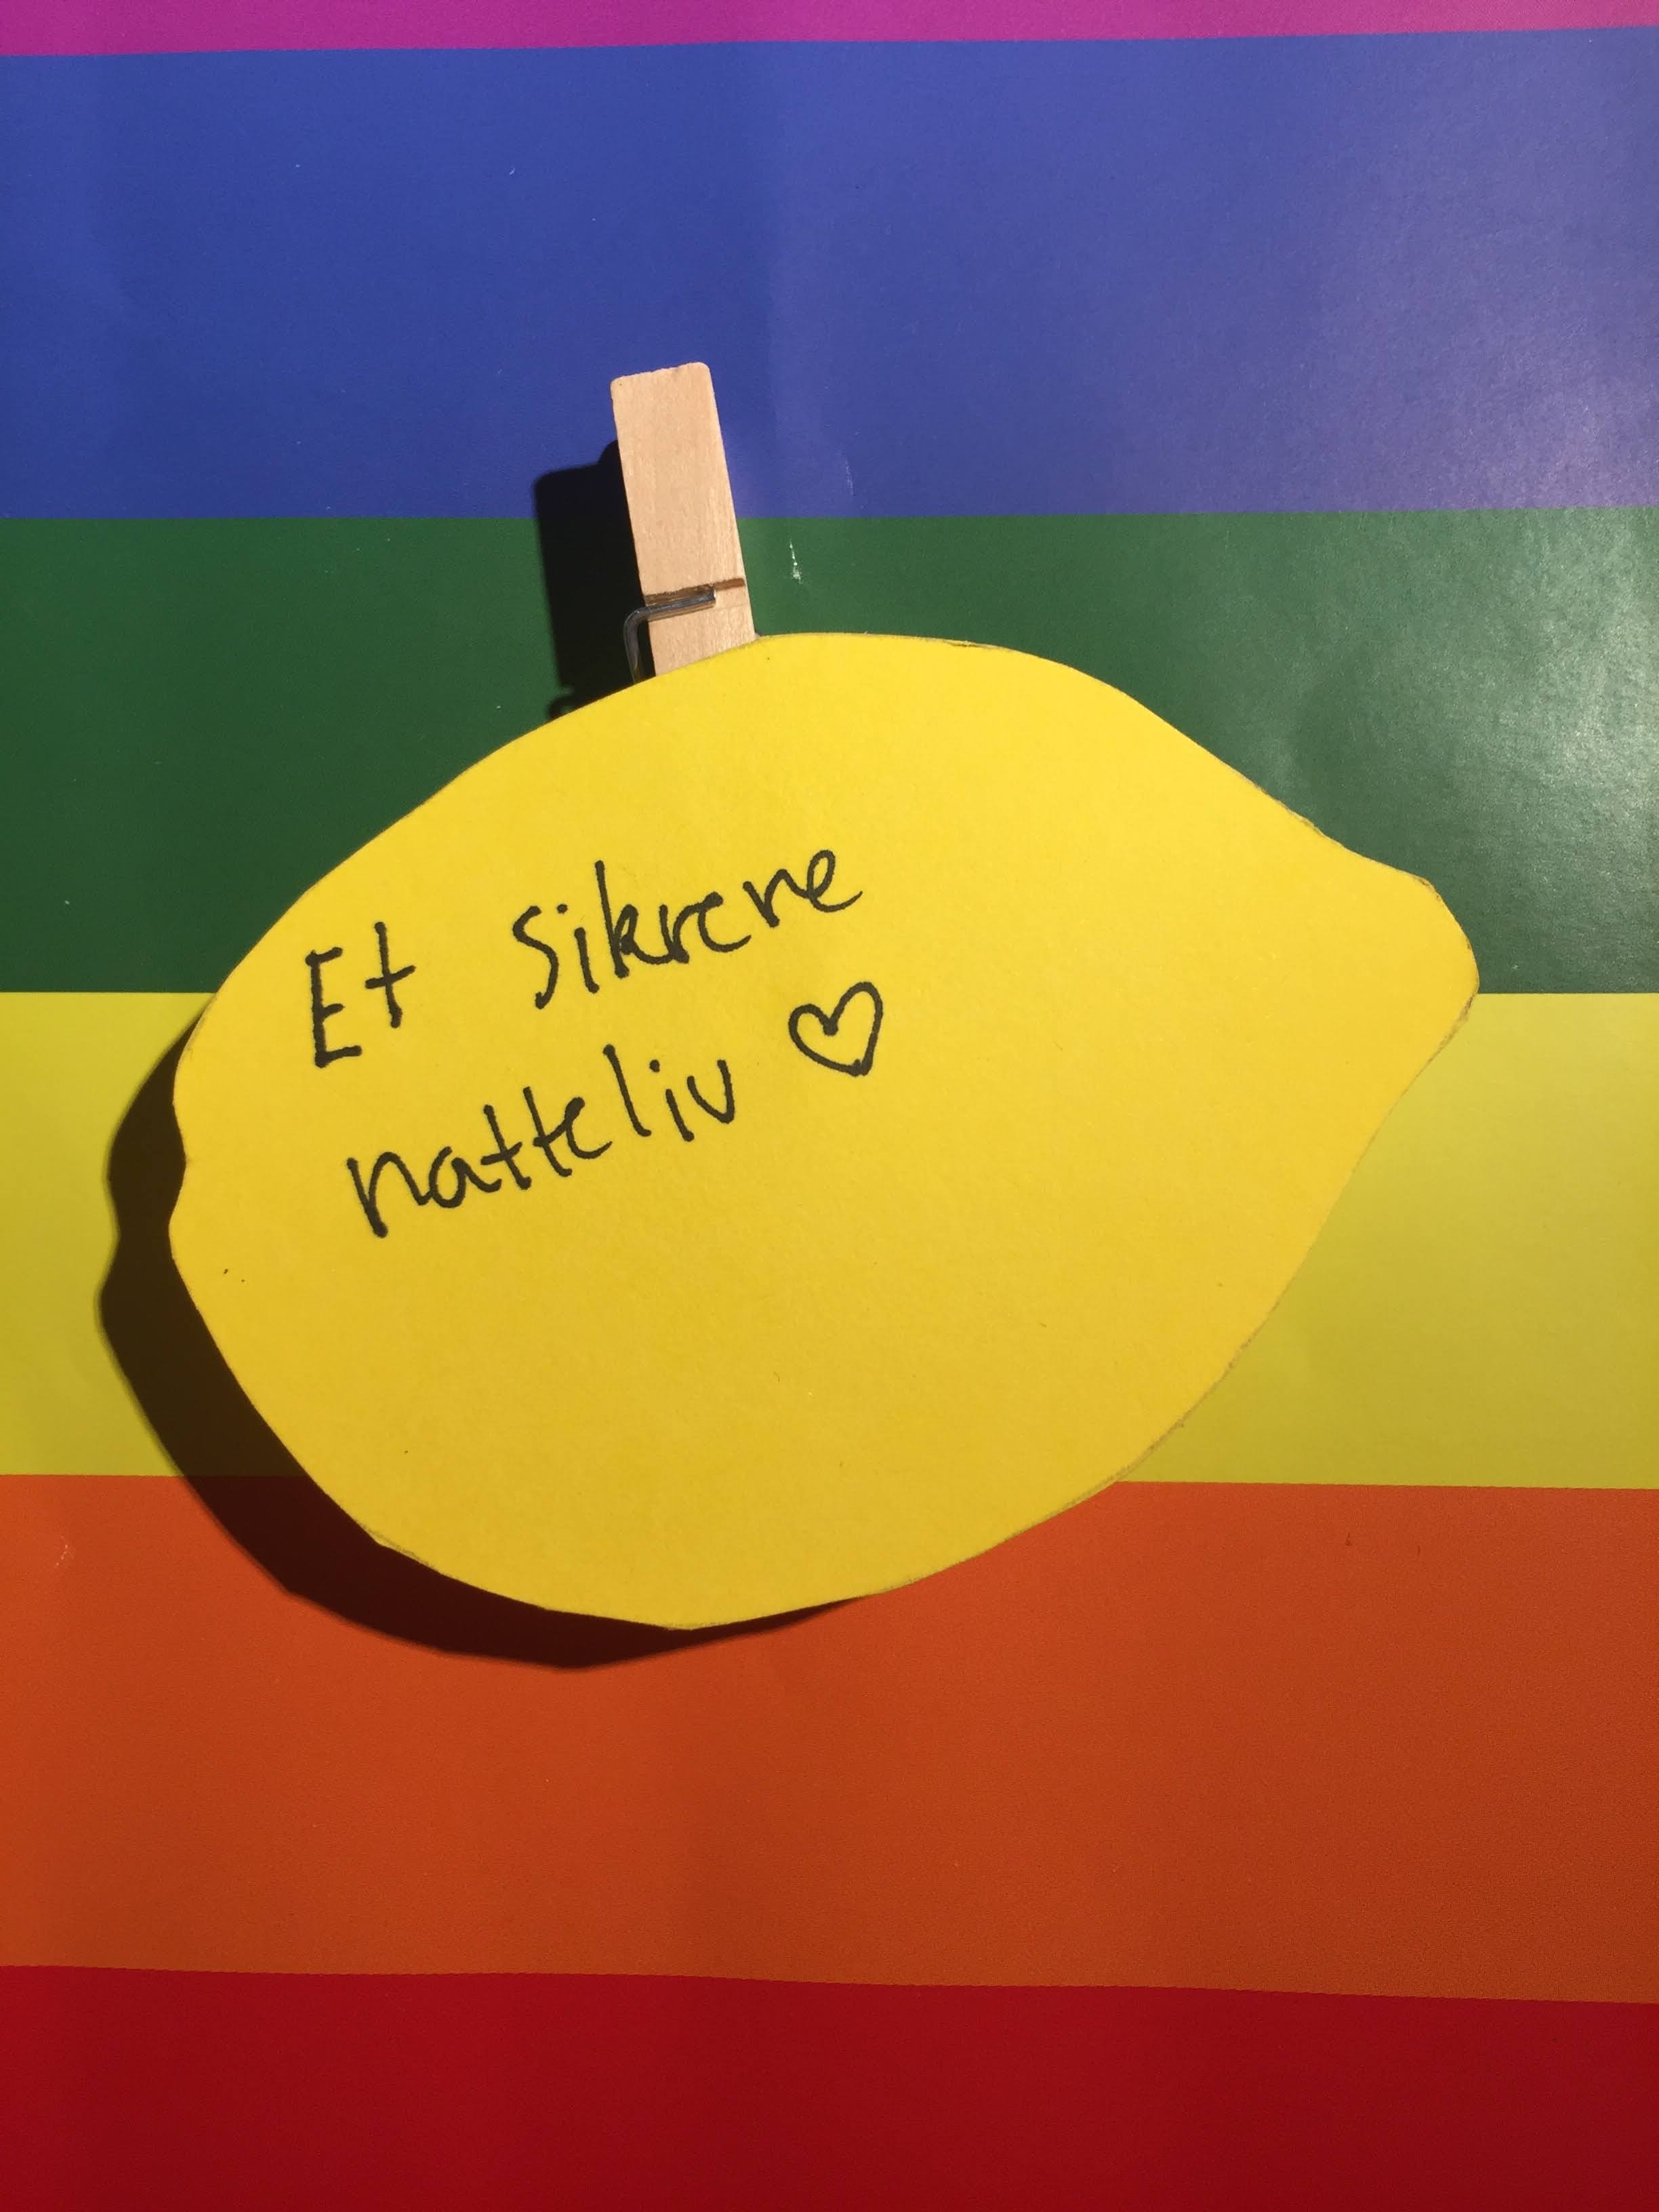 Et sikrere
natteliv ♡